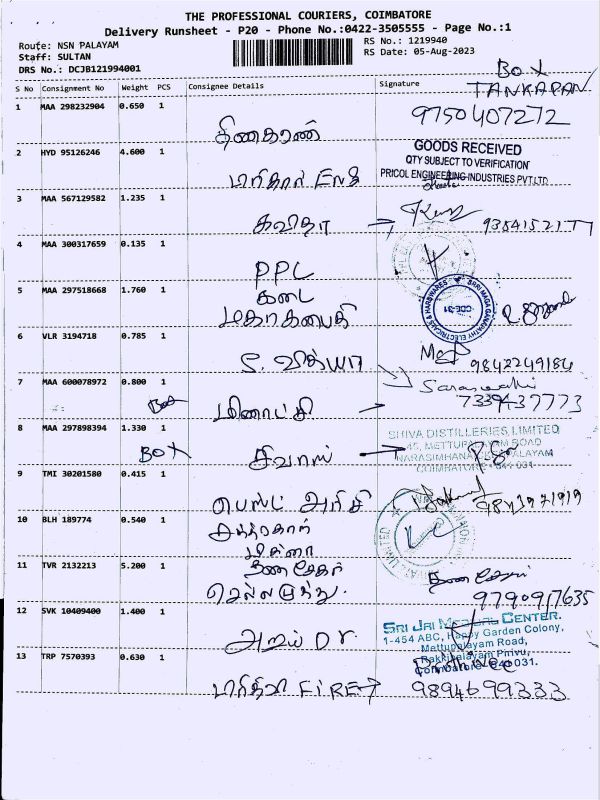 THE PROFESSIONAL COURIERS, COIMBATORE
Delivery Runsheet - P20 - Phone No.:0422-3505555 - Page No.:1
Route: NSN PALAYAM
RS No.: 1219940
Staff: SULTAN
RS Date: 05-Aug-2023
DRS No.: DCJB121994001
S No Consignment No Weight PCS Consignee Details Signature
BOX
1 MAA 298232904 0.650 1
9750407272
தினகரன்
2 HYD 95126246 4.600 1
GOODS RECEIVED
QTY SUBJECT TO VERIFICATION
PRICOL ENGINEERING INDUSTRIES PVT LTD
3 MAA 567129582 1.235 1
கவிதா
4 MAA 300317659 0.135 1
PPL
5 MAA 297518668 1.760 1
கடை
SRRI MAGA GANAPATHY ELECTRICALS & HARDWARES
CBE-31
6 VLR 3194718 0.785 1
S. வித்யா
9842249184
7 MAA 600078972 0.800 1
Box
மீனாட்சி
Saraswathi
8 MAA 297898394 1.330 1
BOX
சிவாஸ்
SHIVA DISTILLERIES LIMITED
METTUPALAYAM ROAD
COIMBATORE - 641 031
9 TMI 30201580 0.415 1
பெஸ்ட் அரிசி
10 BLH 189774 0.540 1
11 TVR 2132213 5.200 1
தனசேகர்
9790917635
12 SVK 10409400 1.400 1
SRI JAI MEDICAL CENTER.
1-454 ABC, Happy Garden Colony,
Mettupalayam Road,
Rakkipalayam Privu,
Coimbatore - 641031.
13 TRP 7570393 0.630 1
FIRE
9894699333